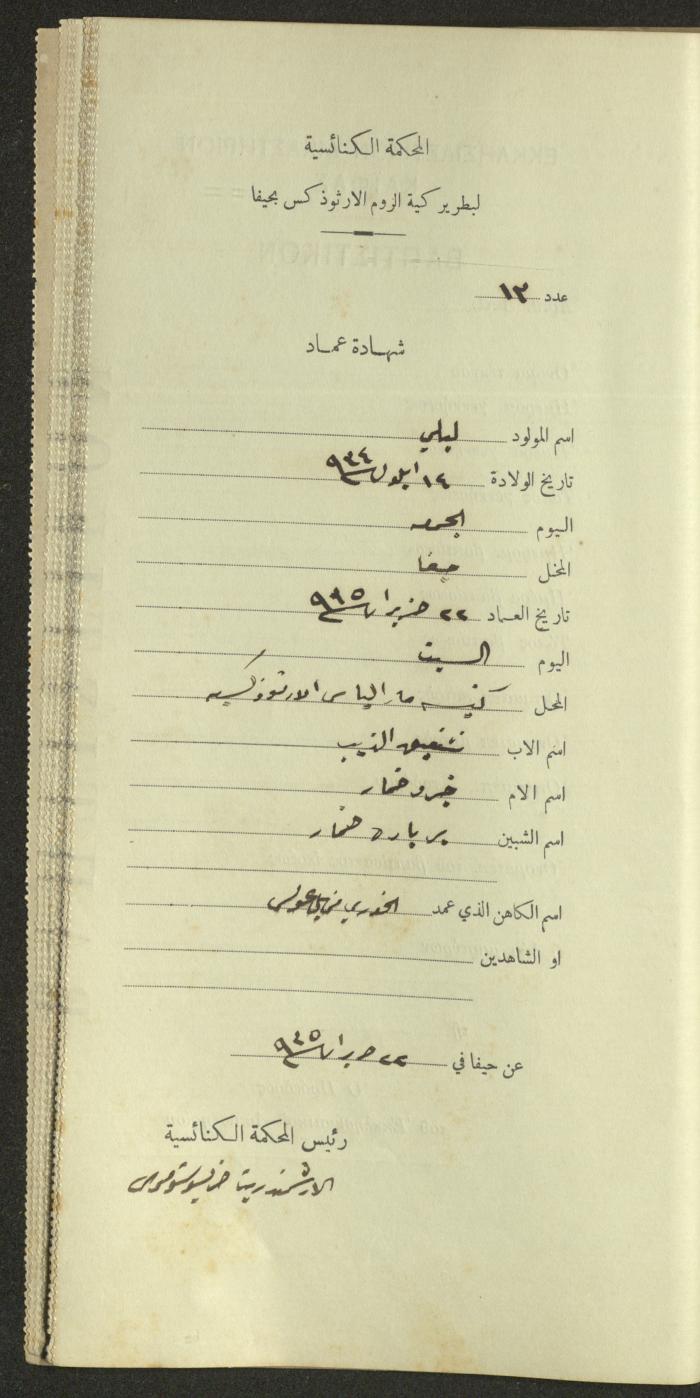 المحكمة الكنائسية
لبطريركية الروم الارثوذكس بحيفا
عدد ١٣
شهادة عماد
اسم المولود ليلي
تاريخ الولادة ١٤ ايلول ٩٣٤
اليوم الجمعه
المحل حيفا
تاريخ العماد ٢٢ حزيران
اليوم السبت
المحل كنيسه مار الياس الارثوذكسيه
اسم الاب شفيق الذيب
اسم الام خمار
اسم الشبين بربارة خمار
اسم الكاهن الذي عمد الخوري
او الشاهدين
عن حيفا في ٢٢ حزيران
رئيس المحكمة الكنائسية
الارشمندريت